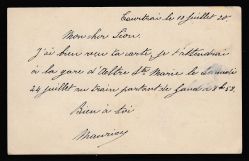 Courtrai le 18 Juillet 20
Mon cher Léon.
J'ai bien reçu ta carte, je t'attendrai
à la gare d'Aeltre Ste Marie le samedi
24 juillet au train partant de Gand à 8h52.
Bien à toi
Maurice